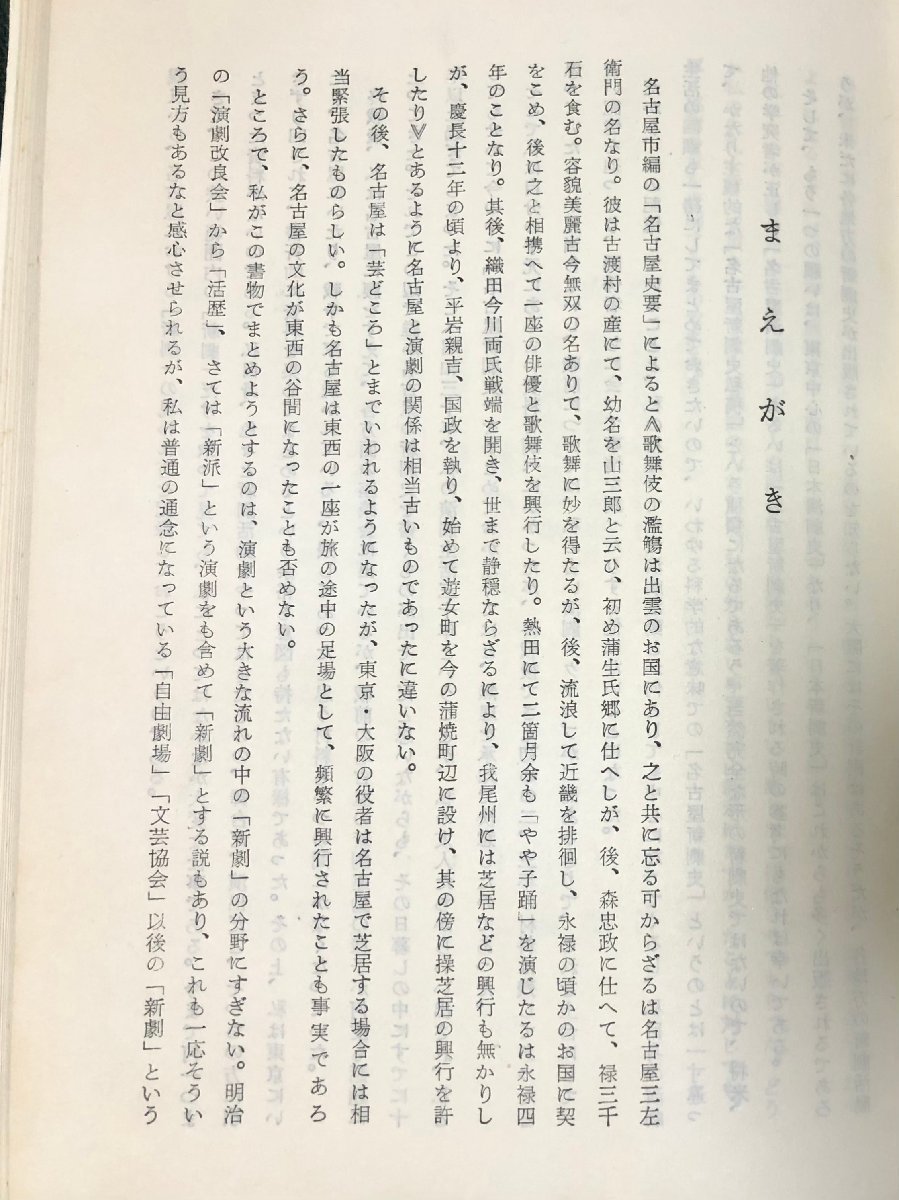 まえがき
名古屋市編の「名古屋史要」によると≪歌舞伎の濫觴は出雲のお国にあり、之と共に忘る可からざるは名古屋三左
衛門の名なり。彼は古渡村の産にて、幼名を山三郎と云ひ、初め蒲生氏郷に仕へしが、後、森忠政に仕へて、禄三千
石を食む。容貌美麗古今無双の名ありて、歌舞に妙を得たるが、後、流浪して近畿を排徊し、永禄の頃かのお国に契
をこめ、後に之と相携へて一座の俳優と歌舞伎を興行したり。熱田にて二箇月余も「やや子踊」を演じたるは永禄四
年のことなり。其後、織田今川両氏戦端を開き、世まで静穏ならざるにより、我尾州には芝居などの興行も無かりし
が、慶長十二年の頃より、平岩親吉、国政を執り、始めて遊女町を今の蒲焼町辺に設け、其の傍に操芝居の興行を許
したり≫とあるように名古屋と演劇の関係は相当古いものであったに違いない。
その後、名古屋は「芸どころ」とまでいわれるようになったが、東京・大阪の役者は名古屋で芝居する場合には相
当緊張したものらしい。しかも名古屋は東西の一座が旅の途中の足場として、頻繁に興行されたことも事実であろ
う。さらに、名古屋の文化が東西の谷間になったことも否めない。
ところで、私がこの書物でまとめようとするのは、演劇という大きな流れの中の「新劇」の分野にすぎない。明治
の「演劇改良会」から「活歴」、さては「新派」という演劇をも含めて「新劇」とする説もあり、これも一応そうい
う見方もあるなと感心させられるが、私は普通の通念になっている「自由劇場」「文芸協会」以後の「新劇」という